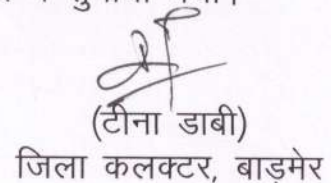 (टीना डाबी)
जिला कलक्टर, बाड़मेर